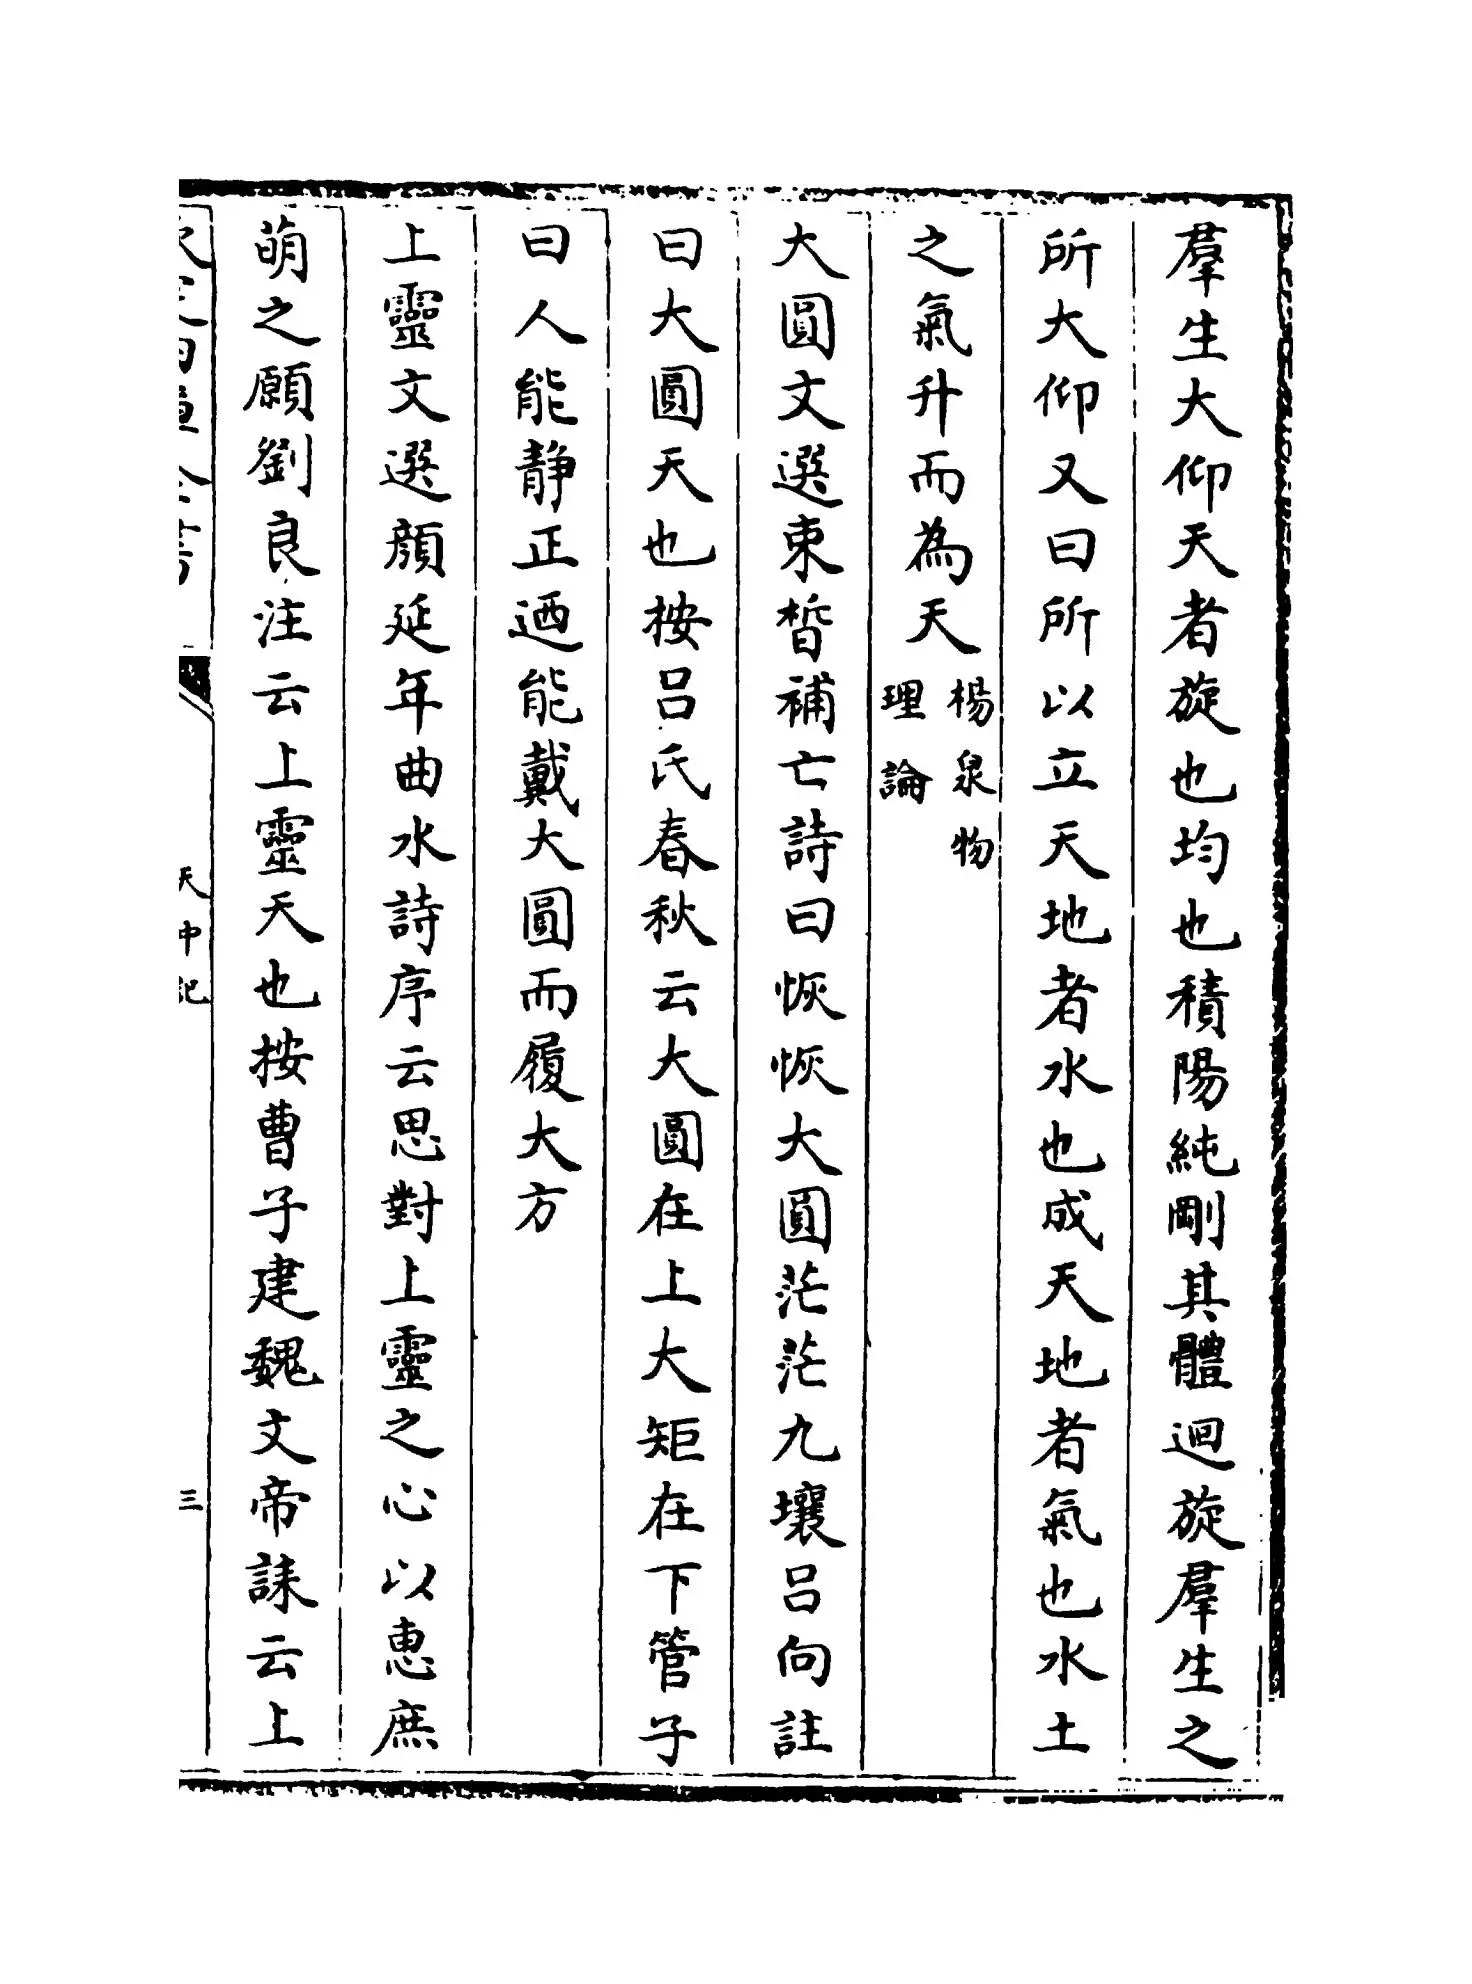 羣生大仰天者旋也均也積陽純剛其體迴旋羣生之
所大仰又曰所以立天地者水也成天地者氣也水土
之氣升而為天楊泉物
理論
大圓文選束晳補亡詩曰恢恢大圓茫茫九壤吕向註
曰大圓天也按吕氏春秋云大圓在上大矩在下管子
曰人能静正迺能戴大圓而履大方
上靈文選顔延年曲水詩序云思對上靈之心以惠庶
萌之願劉良注云上靈天也按曹子建魏文帝誄云上
天中記
三